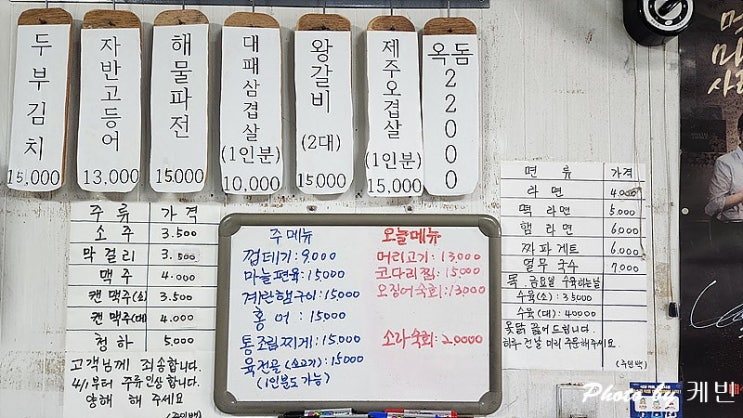 두부김치
15,000
자반고등어
13,000
해물파전
15000
대패삼겹살
(1인분)
10,000
왕갈비
(2대)
15000
제주오겹살
(1인분)
15,000
옥돔
22000
주류 가격
소주 3.500
막걸리 3.500
맥주 4.000
캔맥주(소) 3.500
캔맥주(대) 4.000
청하 5.000
고객님께 죄송합니다.
4/1부터 주류인상합니다.
양해 해 주세요
(주인백)
주메뉴
껍데기: 9,000
마늘편육: 15,000
계란햄구이: 15,000
홍어: 15,000
통조림찌게: 15,000
육전을(소고기): 15,000
(1인분도 가능)
오늘메뉴
머리고기: 13,000
코다리찜: 15,000
오징어숙회: 13,000
소라숙회: 20000
면류 가격
라면 4.000
떡라면 5.000
햄라면 6.000
짜파게트 6.000
열무국수 7.000
목.금요일 수육하는날
수육(소): 35000
수육(대): 40000
옻닭 끓어드립니다.
하루 전날 미리 주문해주세요.
(주인백)
Photo by 케빈